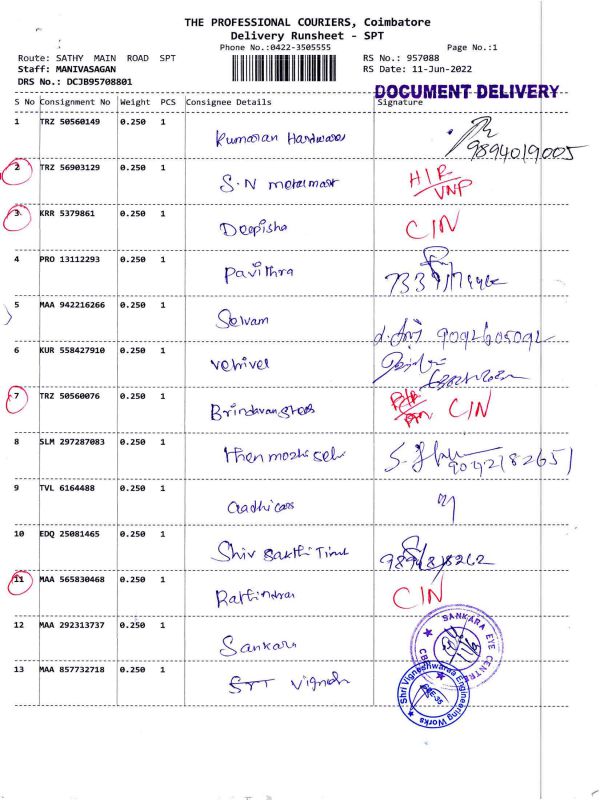 THE PROFESSIONAL COURIERS, Coimbatore
Delivery Runsheet - SPT
Phone No.:0422-3505555 Page No.:1
Route: SATHY MAIN ROAD SPT RS No.: 957088
Staff: MANIVASAGAN RS Date: 11-Jun-2022
DRS No.: DCJB95708801
DOCUMENT DELIVERY
S No Consignment No Weight PCS Consignee Details Signature
1 TRZ 50560149 0.250 1 Kumaran Hardwares 9894019005
2 TRZ 56903129 0.250 1 S.N metalmart
3 KRR 5379861 0.250 1 Deepisha CIN
4 PRO 13112293 0.250 1 Pavithra
5 MAA 942216266 0.250 1 Selvam 9092605092
6 KUR 558427910 0.250 1 vetrivel
7 TRZ 50560076 0.250 1 CIN
8 SLM 297287083 0.250 1
9 TVL 6164488 0.250 1 aadhi cars
10 EDQ 25081465 0.250 1 Shiv Sakthi
11 MAA 565830468 0.250 1 CIN
12 MAA 292313737 0.250 1 Sankara
SANKARA EYE CENTRE
13 MAA 857732718 0.250 1 Vignesh
Shri Vigneshwara Engineering Works